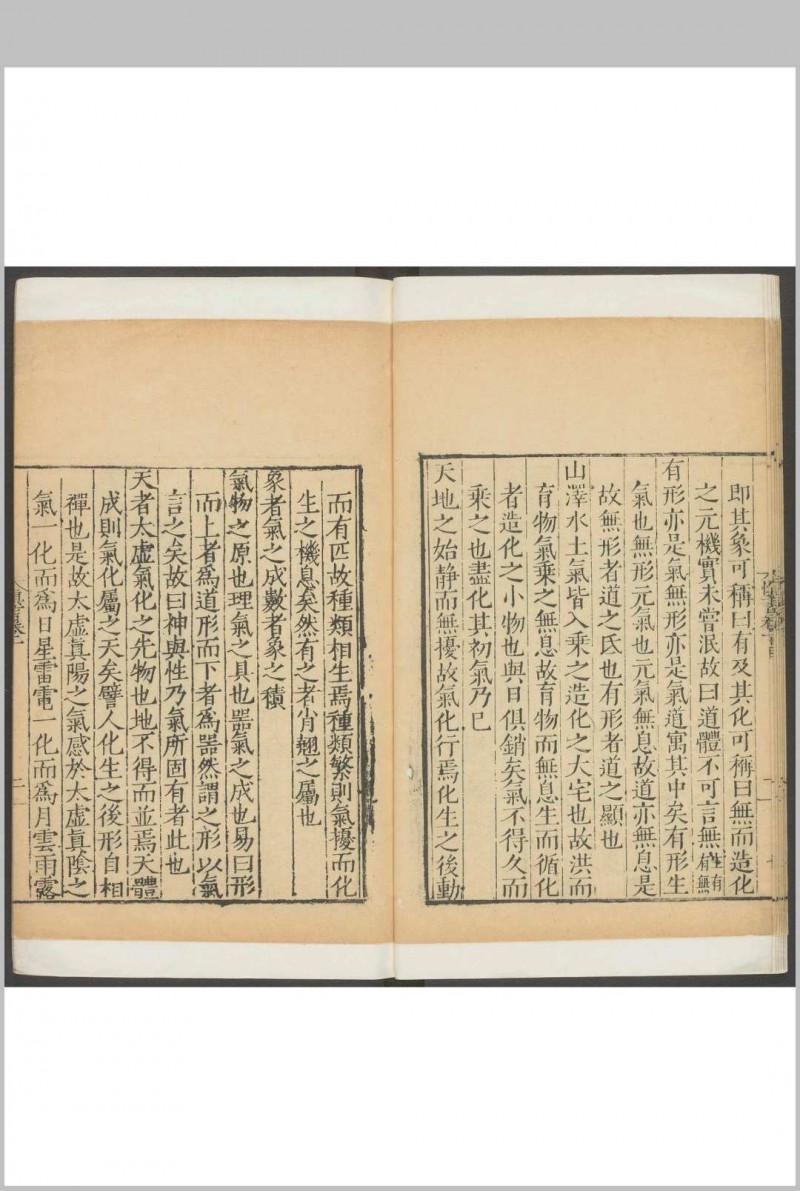 即其象可稱曰有及其化可稱曰無而造化
之元機實未嘗泯故曰道體不可言無生有有無
有形亦是氣無形亦是氣道寓其中矣有形生
氣也無形元氣也元氣無息故道亦無息是
故無形者道之氐也有形者道之顯也
山澤水土氣皆入乗之造化之大宅也故洪而
育物氣乗之無息故育物而無息生而循化
者造化之小物也與日俱銷矣氣不得久而
乗之也盡化其初氣乃已
天地之始静而無擾故氣化行焉化生之後動
而有匹故種類相生焉種類繁則氣擾而化
生之機息矣然有之者肖翹之屬也
象者氣之成數者象之積
氣物之原也理氣之具也器氣之成也易曰形
而上者爲道形而下者爲器然謂之形以氣
言之矣故曰神與性乃氣所固有者此也
天者太虛氣化之先物也地不得而並焉天體
成則氣化屬之天矣譬人化生之後形自相
禪也是故太虛真陽之氣感於太虛真陰之
氣一化而爲日星雷電一化而爲月雲雨露